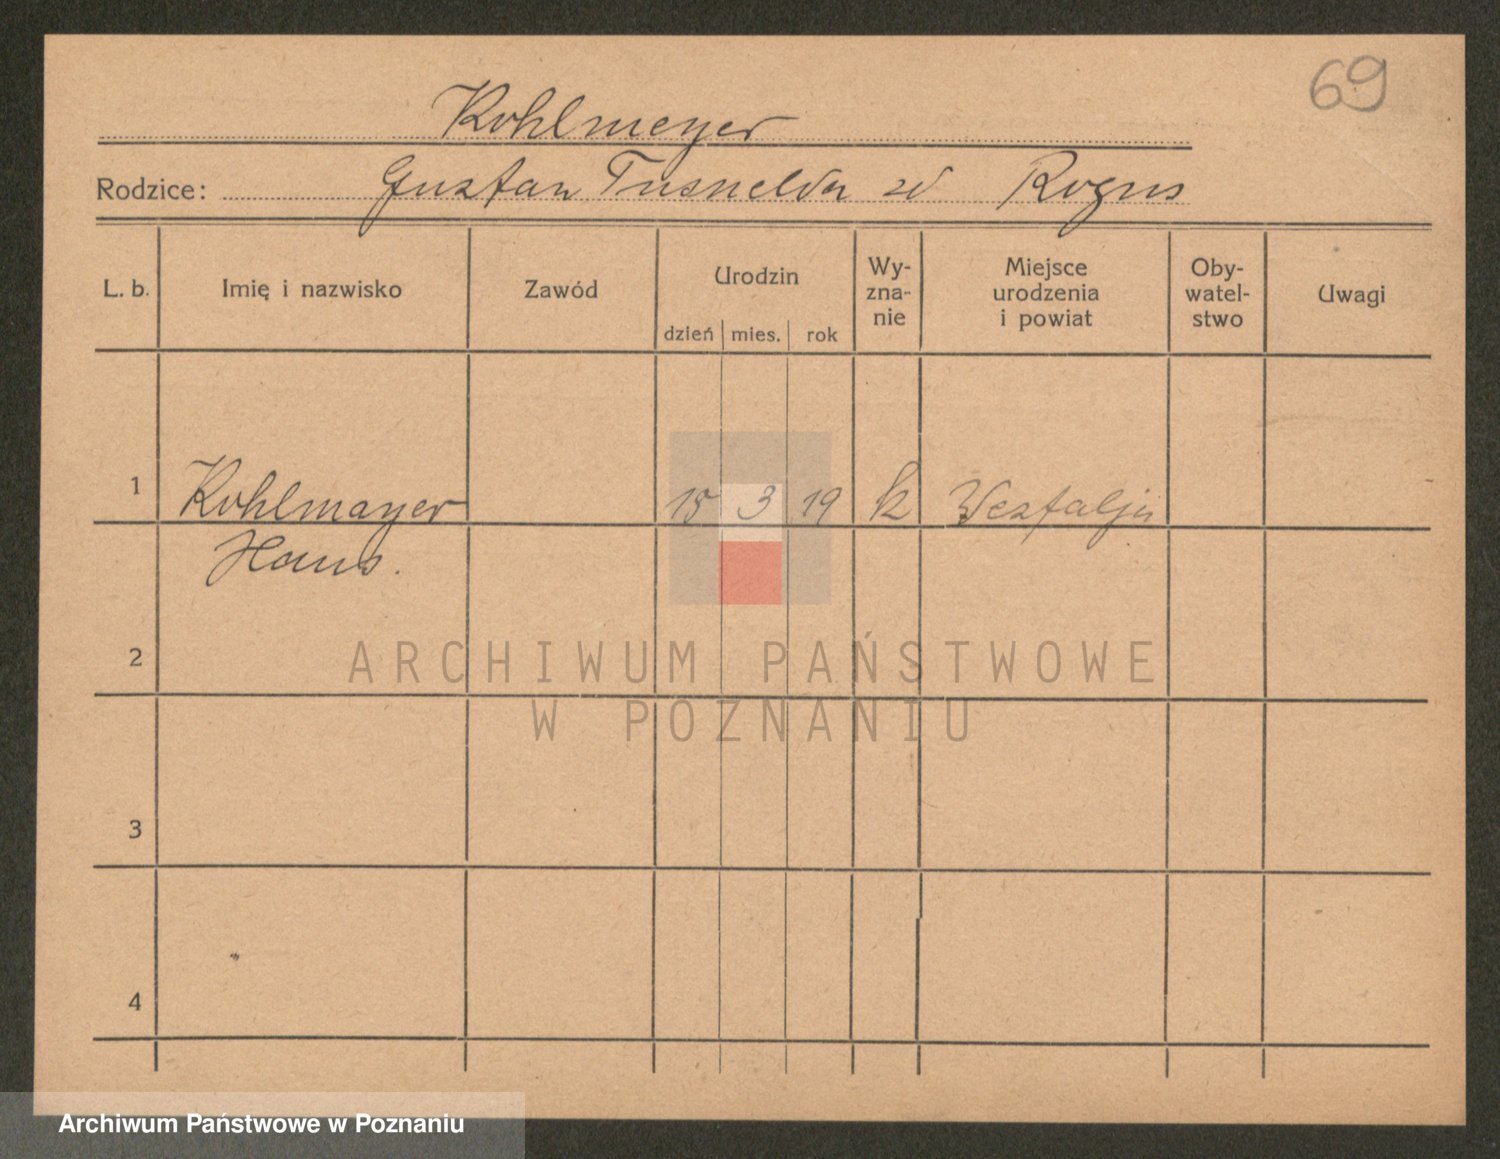 69
Kohlmeyer
Rodzice: Gustaw Tusnelda zd Rogus
L. b. Imię i nazwisko Zawód Urodzin Wy-zna-nie Miejsce urodzenia i powiat Oby-watel-stwo Uwagi
dzień mies. rok
1 Kohlmayer 15 3 19 k Westfalja
Hans.
2
ARCHIWUM PAŃSTWOWE
W POZNANIU
3
4
Archiwum Państwowe w Poznaniu